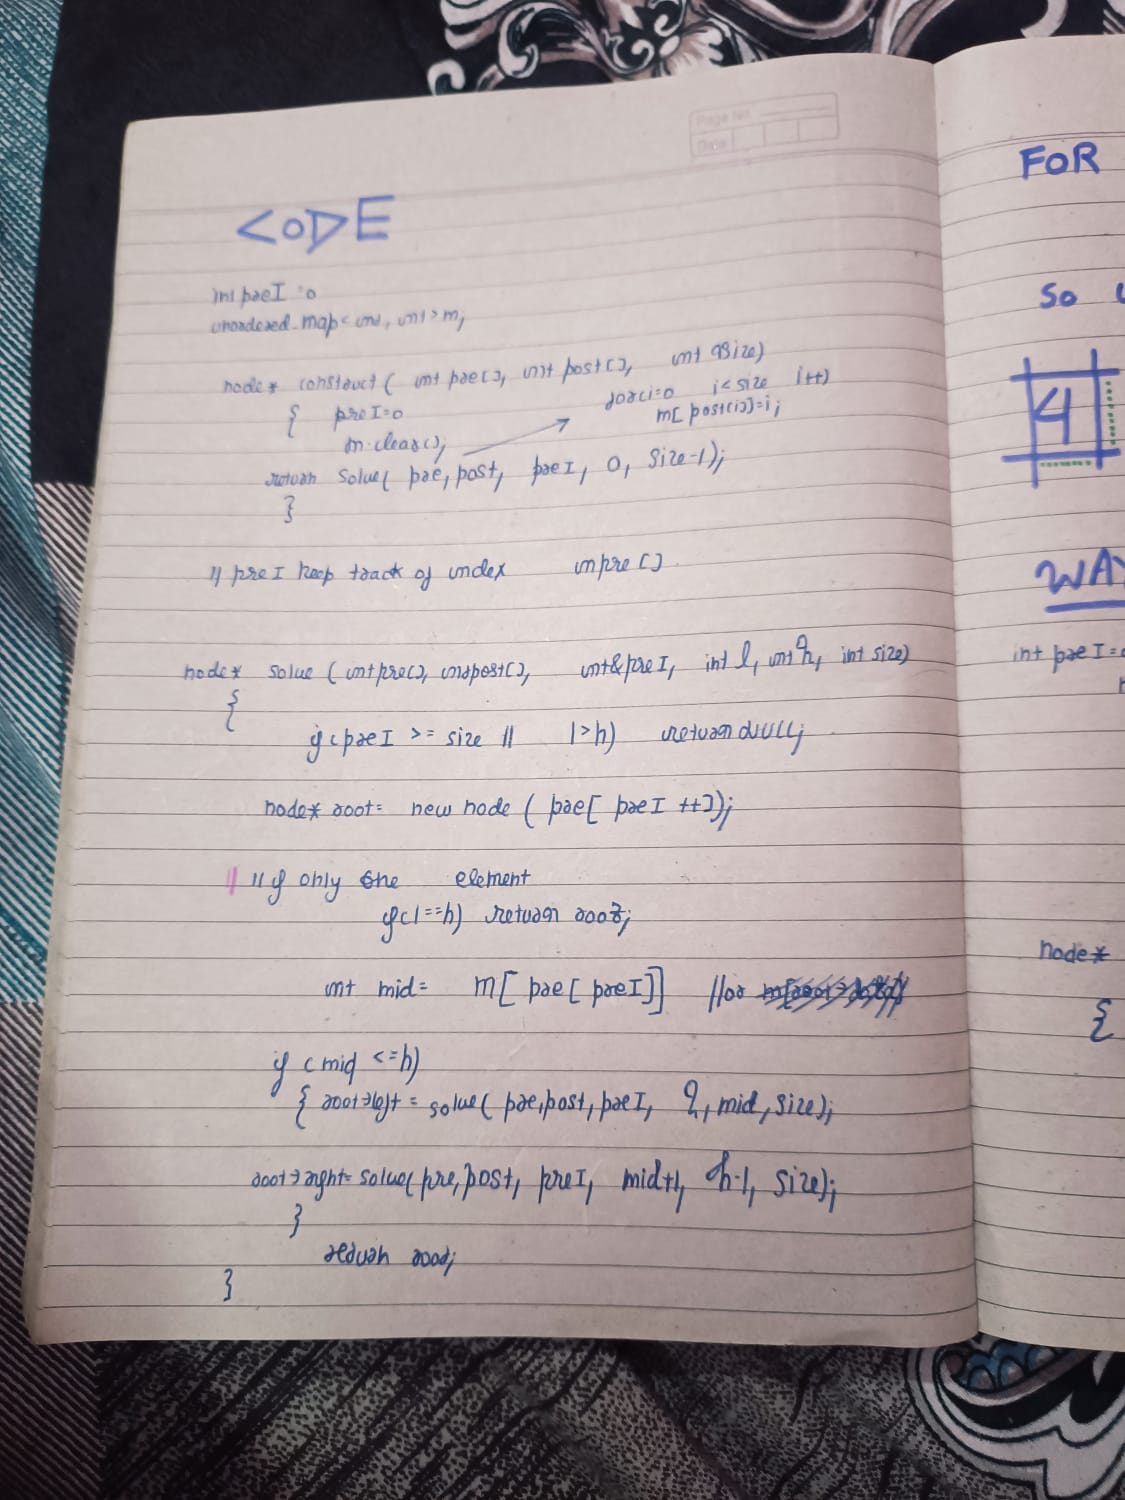 Page No.
Date
CODE
int preI = 0
unordered_map<int, int> m;
node* construct( int pre[], int post[], int size)
{ preI=0 for(i=0 i<size i++)
m[post[i]]=i;
m.clear();
return solve( pre, post, preI, 0, size-1);
}
// preI keep track of index in pre[]
node* solve (int pre[], int post[], int &preI, int l, int h, int size)
{
if(preI >= size || l>h) return NULL;
node* root= new node ( pre[ preI ++]);
// if only one element
if(l==h) return root;
int mid= m[ pre[ preI]] //or
if (mid <=h)
{ root->left = solve( pre,post,preI, l, mid, size);
root->right= solve(pre,post, preI, mid+1, h-1, size);
}
return root;
}
FOR
So
4
WAY
int preI=
node*
{